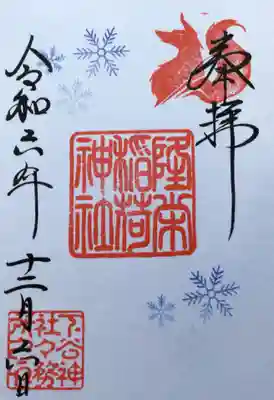 奉拝
隆栄
稲荷
神社
令和六年十二月六日
下谷神
社々務